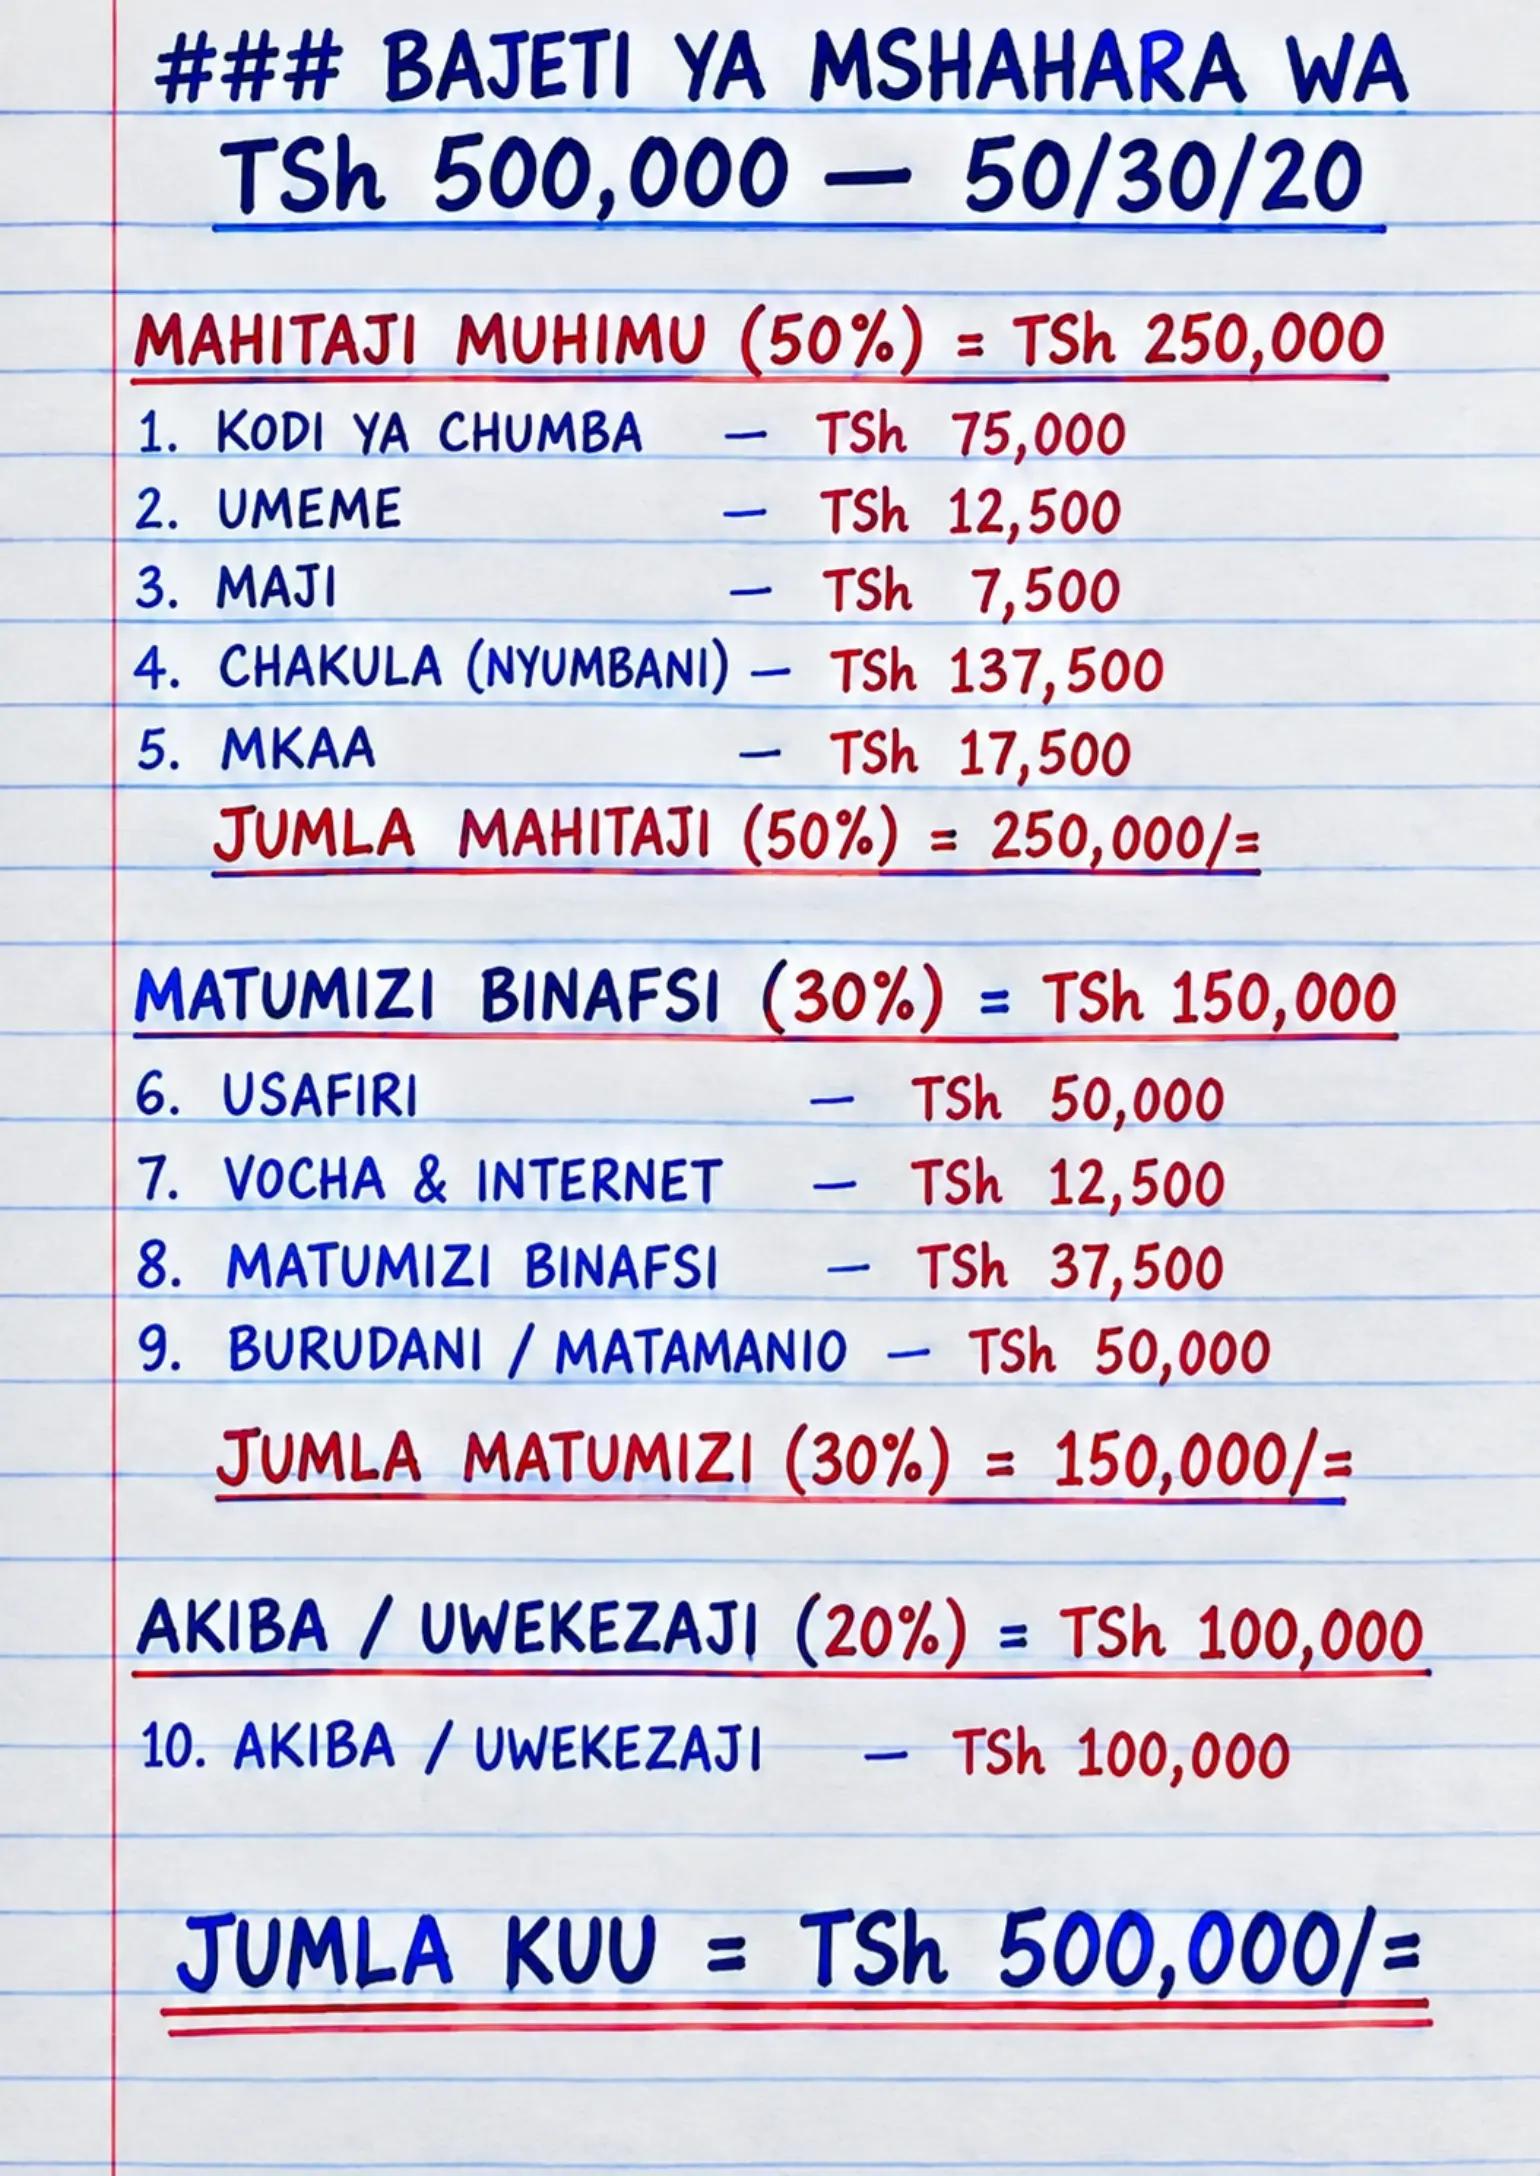 ### BAJETI YA MSHAHARA WA
TSh 500,000 — 50/30/20
MAHITAJI MUHIMU (50%) = TSh 250,000
1. KODI YA CHUMBA — TSh 75,000
2. UMEME — TSh 12,500
3. MAJI — TSh 7,500
4. CHAKULA (NYUMBANI) — TSh 137,500
5. MKAA — TSh 17,500
JUMLA MAHITAJI (50%) = 250,000/=
MATUMIZI BINAFSI (30%) = TSh 150,000
6. USAFIRI — TSh 50,000
7. VOCHA & INTERNET — TSh 12,500
8. MATUMIZI BINAFSI — TSh 37,500
9. BURUDANI / MATAMANIO — TSh 50,000
JUMLA MATUMIZI (30%) = 150,000/=
AKIBA / UWEKEZAJI (20%) = TSh 100,000
10. AKIBA / UWEKEZAJI — TSh 100,000
JUMLA KUU = TSh 500,000/=